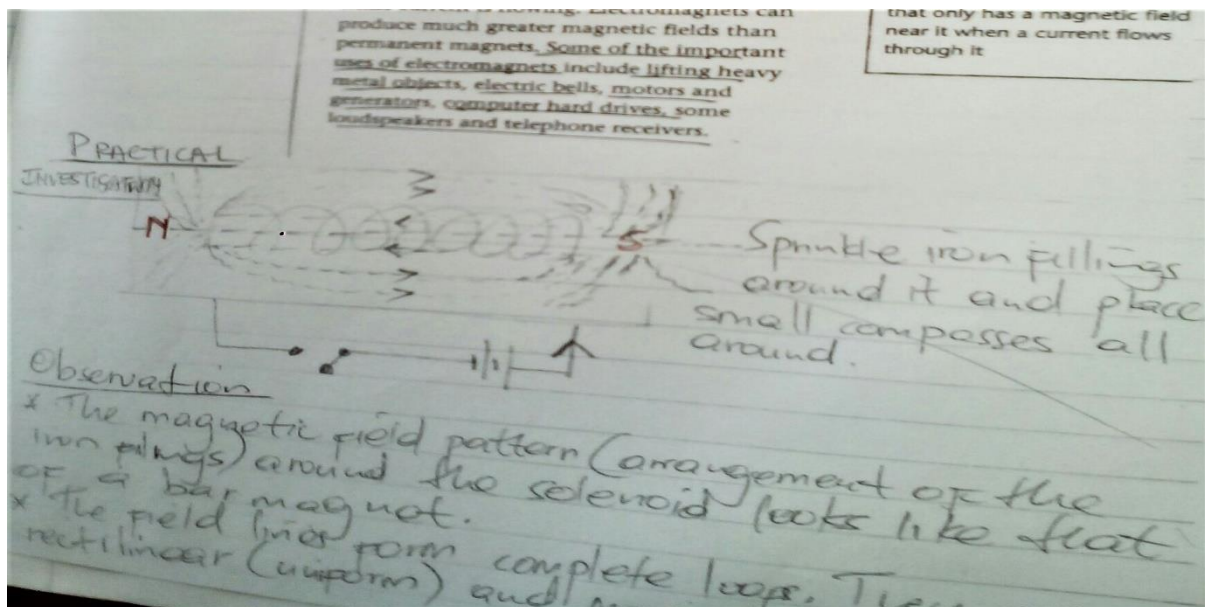 is flowing. Electromagnets can
produce much greater magnetic fields than
permanent magnets. Some of the important
uses of electromagnets include lifting heavy
metal objects, electric bells, motors and
generators, computer hard drives, some
loudspeakers and telephone receivers.
that only has a magnetic field
near it when a current flows
through it
PRACTICAL
N
S
Sprinkle iron fillings
around it and place
small compasses all
around.
Observation
* The magnetic field pattern (arrangement of the
iron filings) around the solenoid looks like that
of a bar magnet.
* The field lines form complete loops.
rectilinear (uniform) and